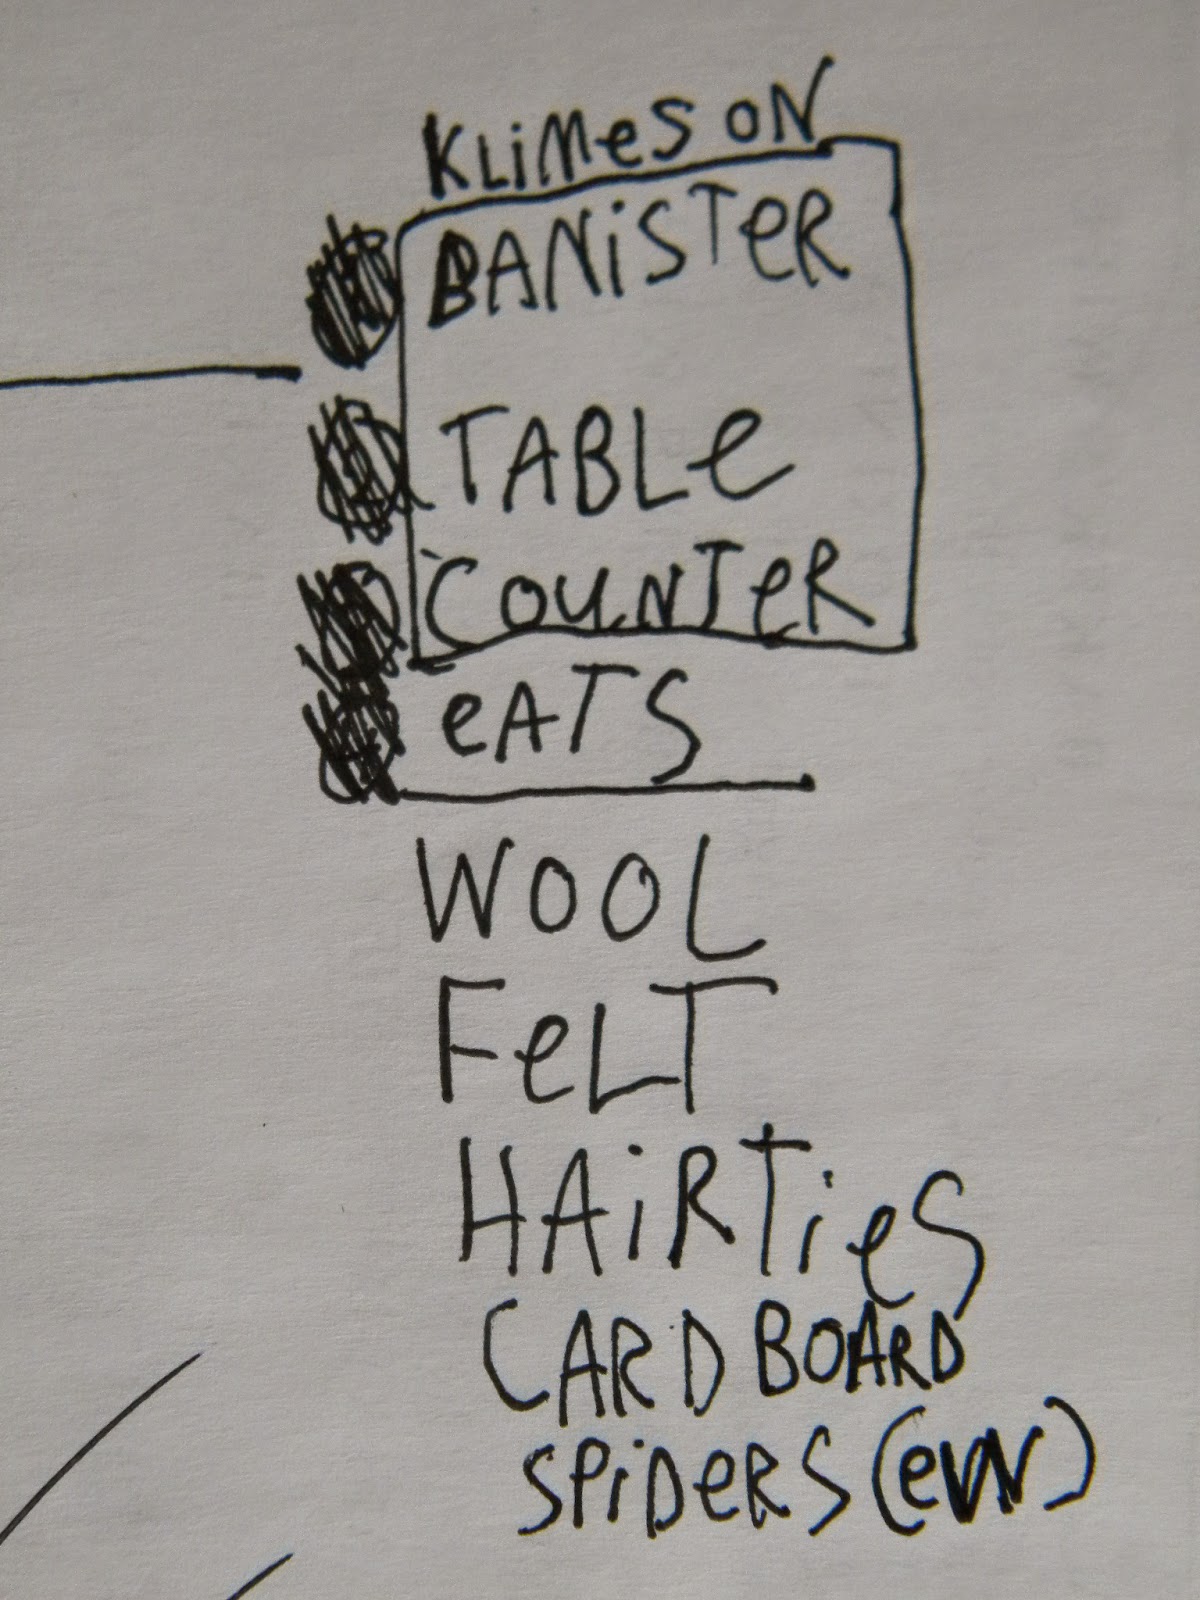 KLiMeS ON
BANiSTeR
TABLe
COUNTeR
eATS
WOOL
FeLT
HAiRTieS
CARDBOARD
SPiDeRS (eW)